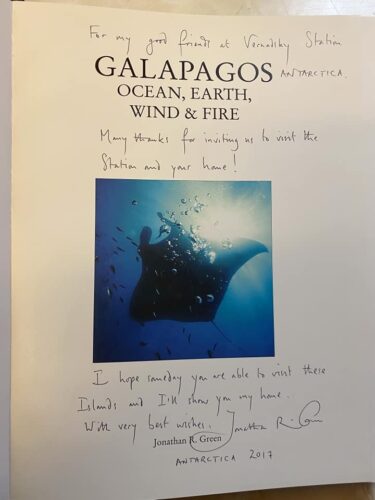 For my good friends at Vernadsky Station
ANTARCTICA.
GALAPAGOS
OCEAN, EARTH,
WIND & FIRE
Many thanks for inviting us to visit the
Station and your home!
I hope someday you are able to visit these
Islands and I'll show you my home.
With very best wishes. Jonathan R. Green
Jonathan R. Green
ANTARCTICA 2017